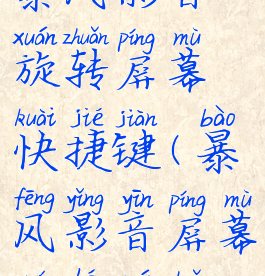 xuán zhuǎn píng mù
旋转屏幕
kuài jié jiàn bào
快捷键(暴
fēng yǐng yīn píng mù
风影音屏幕